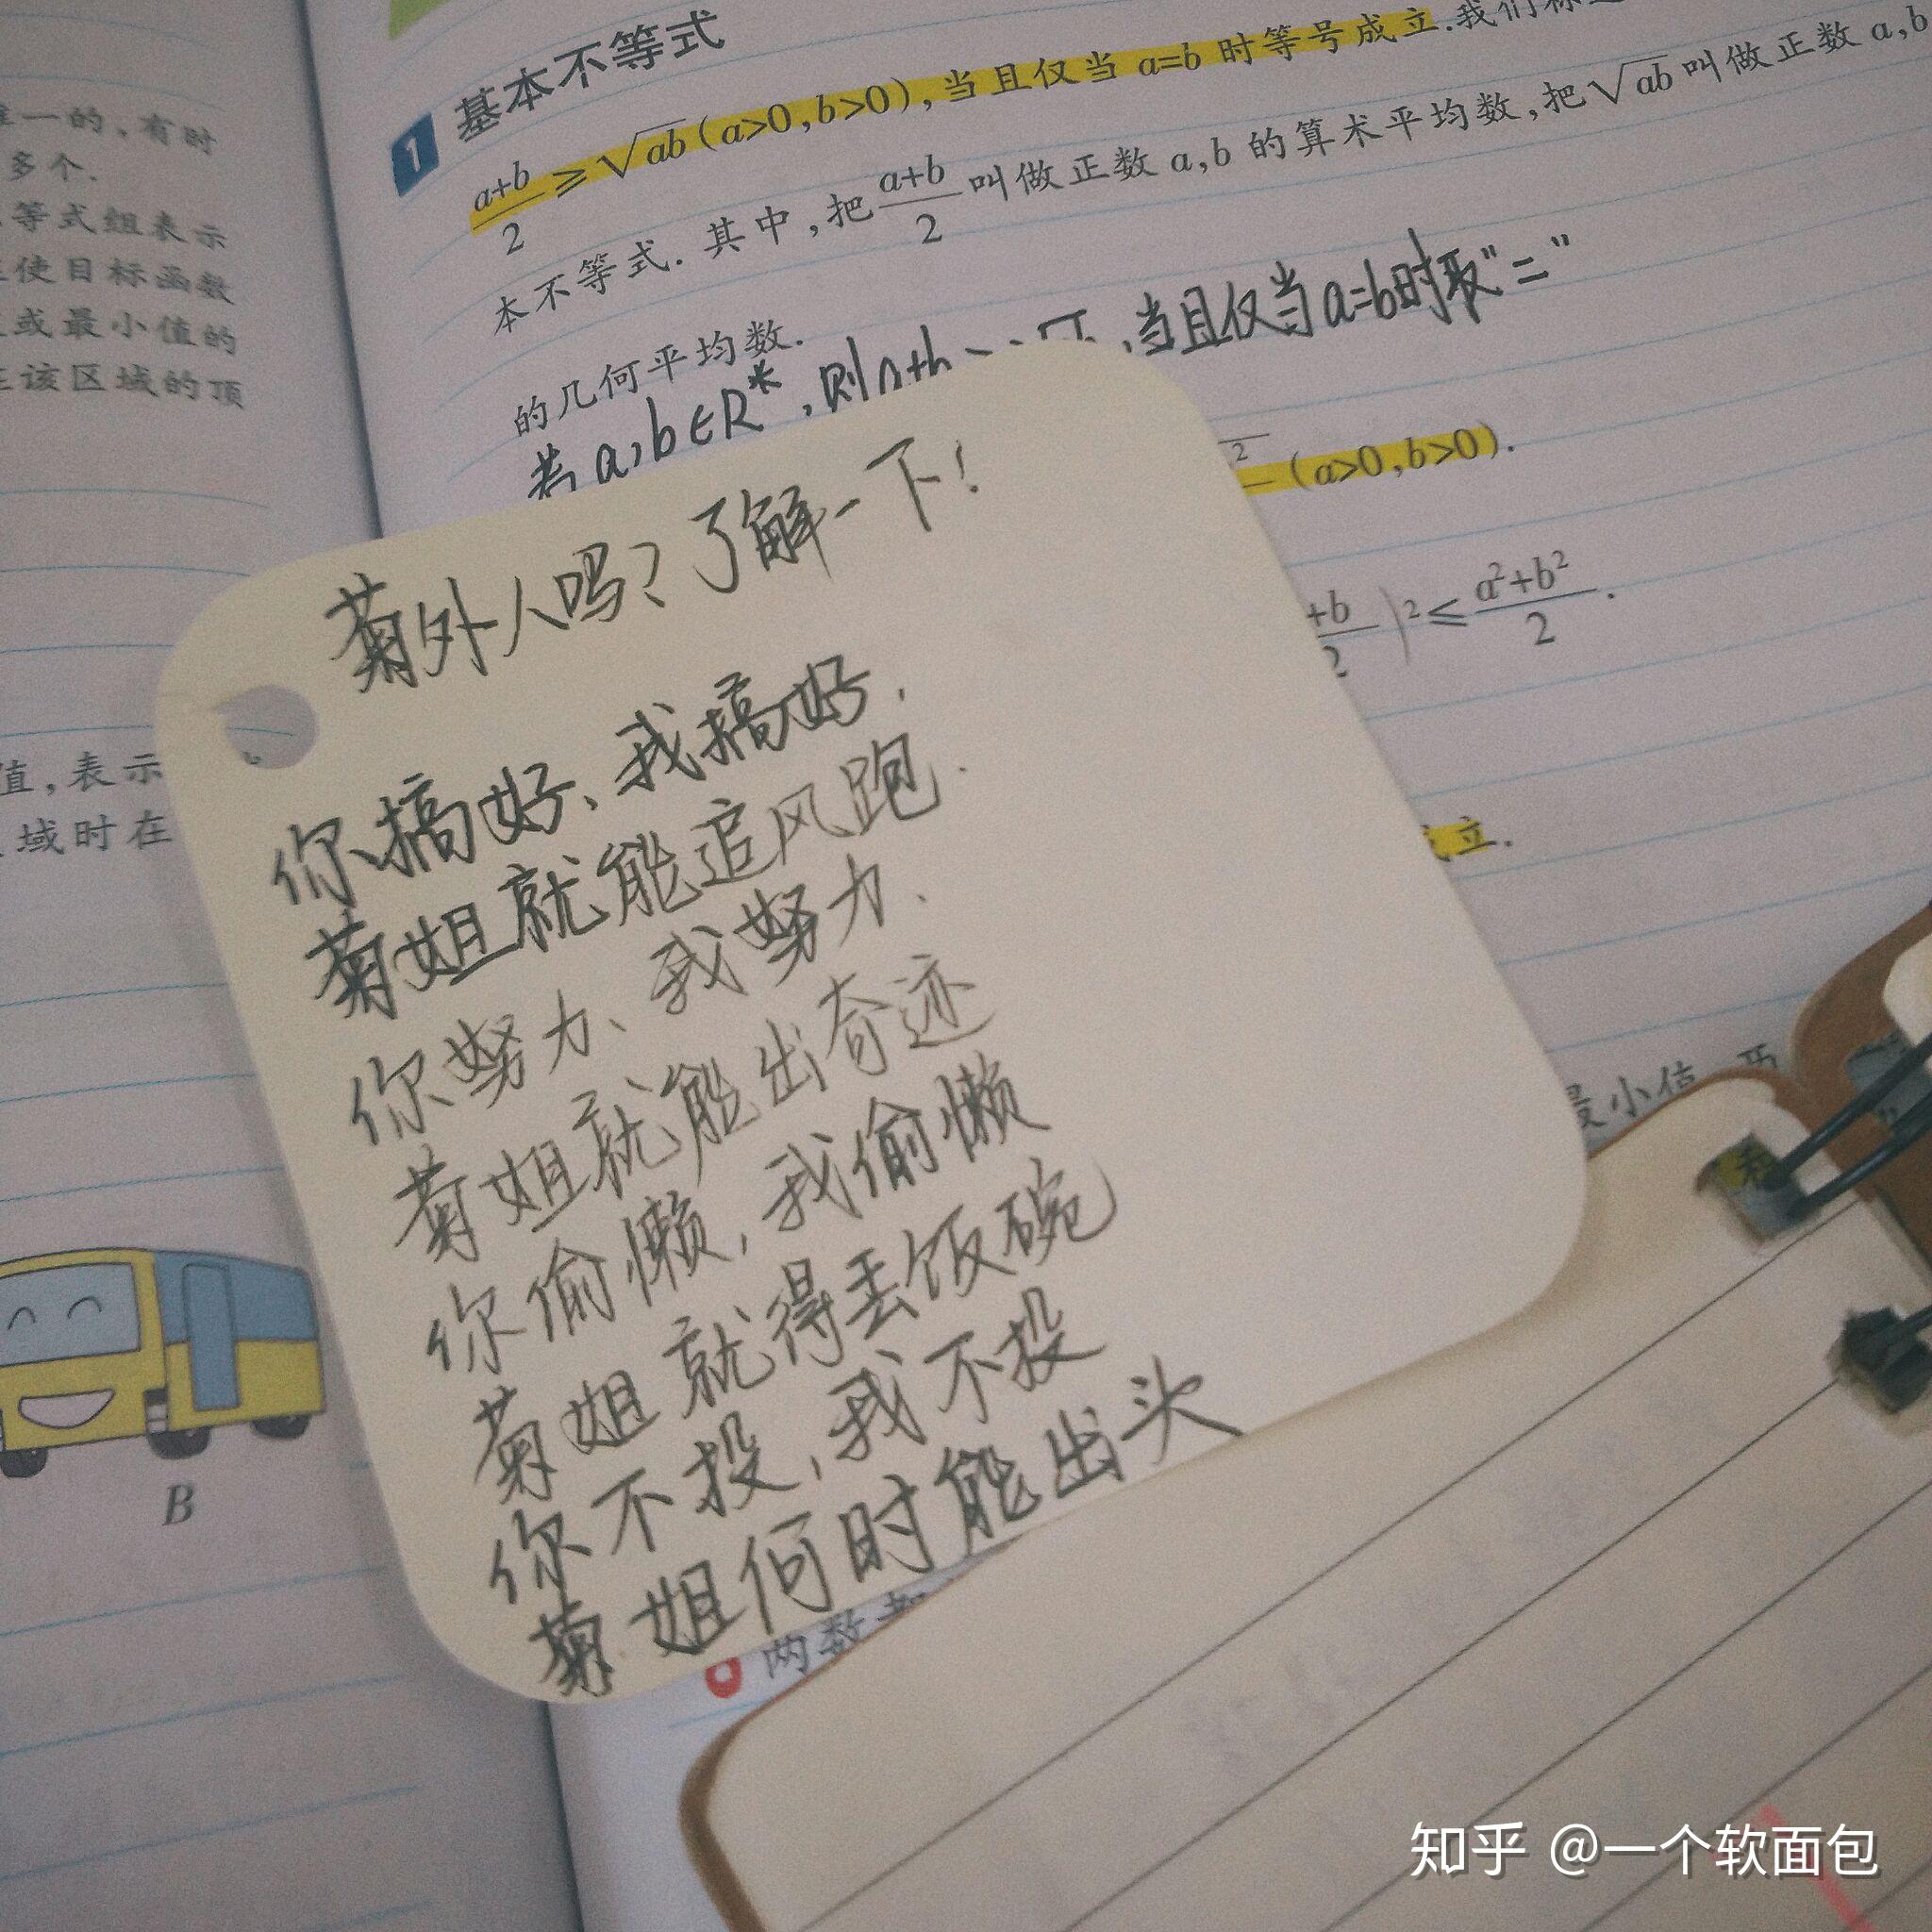 一的,有时
多个.
等式组表示
使目标函数
或最小值的
该区域的顶
值,表示
域时在
B
1 基本不等式
a+b/2≥√ab(a>0,b>0),当且仅当 a=b 时等号成立.我们称
本不等式.其中,把a+b/2叫做正数 a,b 的算术平均数,把√ab叫做正数 a,b
的几何平均数.
若a,b∈R*,则a+b 当且仅当a=b时取"="
2 (a>0,b>0).
+b/2)²≤a²+b²/2.
立.
最小值
两数
菊外人吗?了解一下!
你搞好、我搞好.
菊姐就能追风跑.
你努力、我努力、
菊姐就能出奇迹
你偷懒,我偷懒
菊姐就得丢饭碗
你不投,我不投
菊姐何时能出头
知乎 @一个软面包